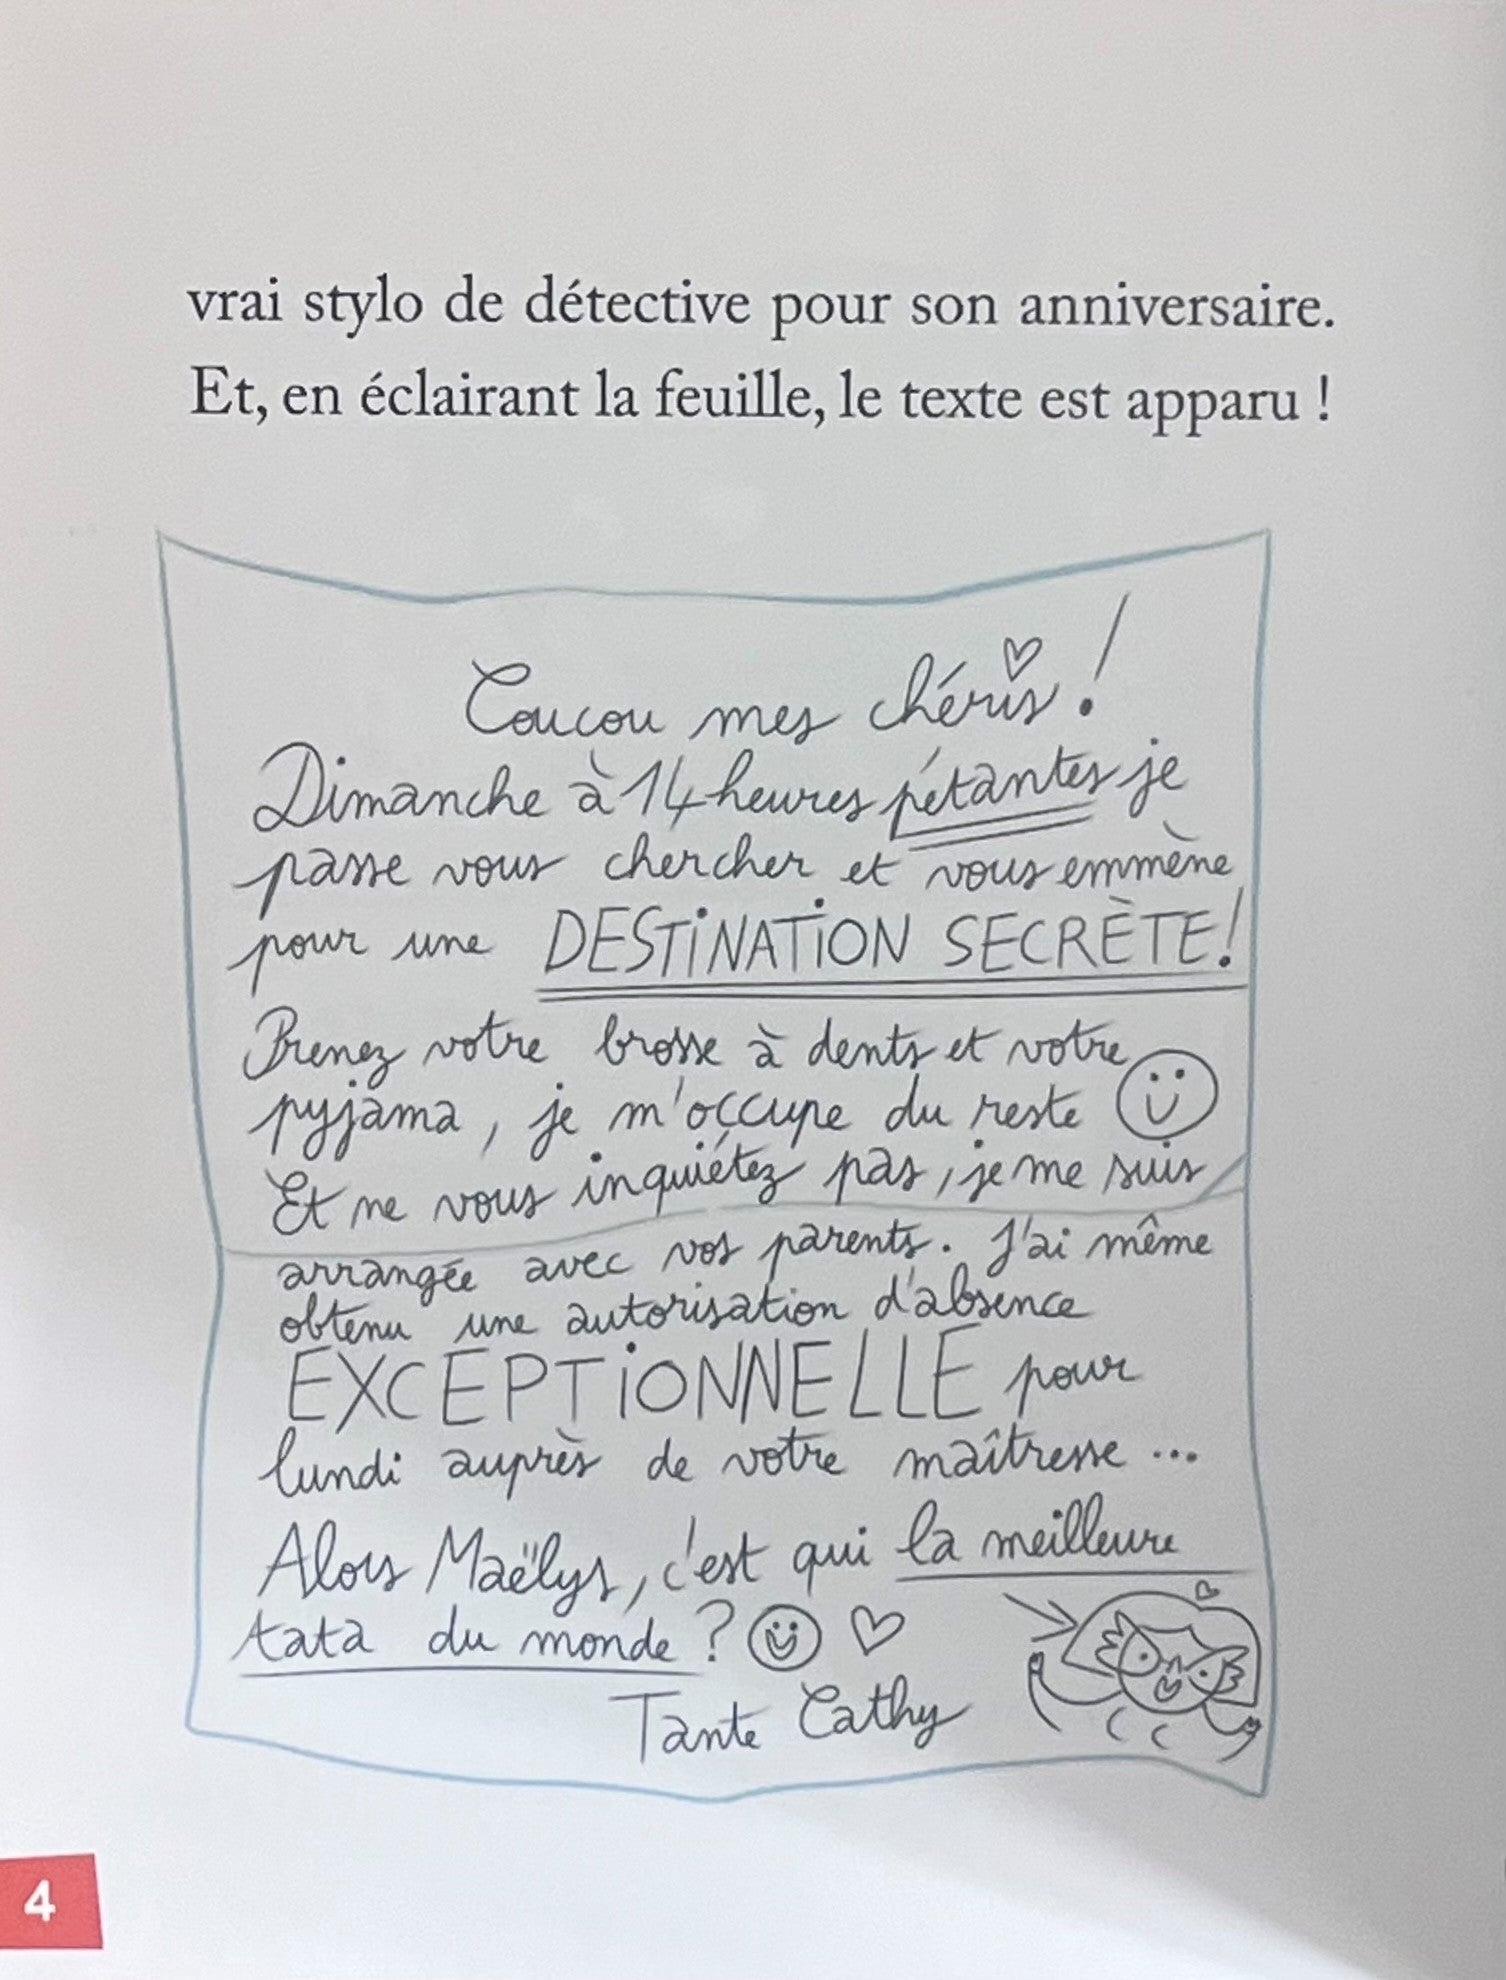 vrai stylo de détective pour son anniversaire.
Et, en éclairant la feuille, le texte est apparu !
Coucou mes chéris !
Dimanche à 14 heures pétantes je
passe vous chercher et vous emmène
pour une DESTiNATiON SECRÈTE!
Prenez votre brosse à dents et votre
pyjama, je m'occupe du reste
Et ne vous inquiétez pas, je me suis
arrangée avec vos parents. J'ai même
obtenu une autorisation d'absence
EXCEPTiONNELLE pour
lundi auprès de votre maîtresse ...
Alors Maëlys, c'est qui la meilleure
tata du monde ?
Tante Cathy
4